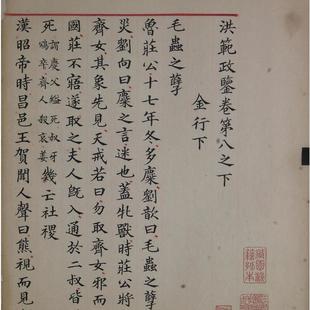 洪範政鑒卷第八之下
金行下
毛蟲之孽
魯莊公十七年冬多麋劉歆曰毛蟲之孽
災劉向曰麋之言迷也蓋牝獸時莊公將
齊女其象先見天戒若曰勿取齊女邪而
國莊不寤遂取之夫人既入通於二叔皆
死謂慶父縊死叔牙
鴆卒齊人殺哀姜幾亡社稷
漢昭帝時昌邑王賀聞人聲曰熊視而見